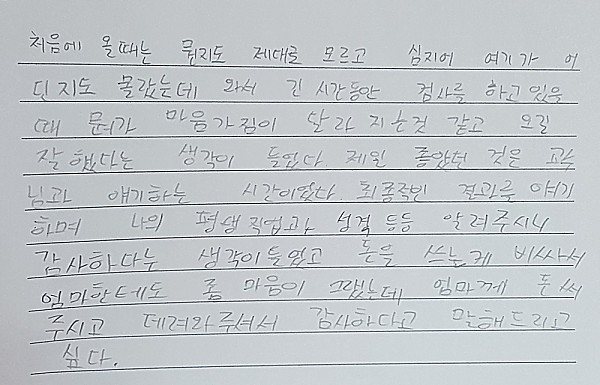 처음에 올때는 뭔지도 제대로 모르고 심지어 여기가 어
딘지도 몰랐는데 와서 긴 시간동안 검사를 하고 있을
때 뭔가 마음가짐이 달라 지는것 같고 오길
잘했다는 생각이 들었다 제일 좋았던 것은 교수
님과 얘기하는 시간이었다. 최종적인 결과를 얘기
하며 나의 평생직업과, 성격 등등 알려주시니
감사하다는 생각이들었고 돈을 쓰는게 비싸서
엄마한테도 좀 마음이 그랬는데 엄마께 돈써
주시고 데려와주셔서 감사하다고 말해드리고
싶다.